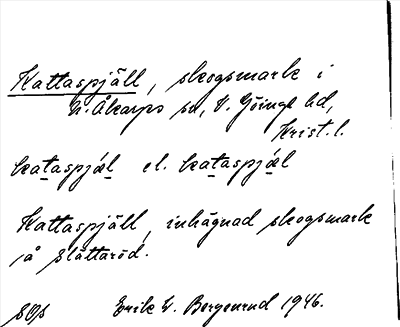 Kattaspjäll, skogsmark i
N. Åkarps sn, V. Göinge hd,
Krist. l.
kataspjäl el. kataspjäl
Kattaspjäll, inhägnad skogsmark
på Slättaröd.
Erik W. Bergenrud 1946.